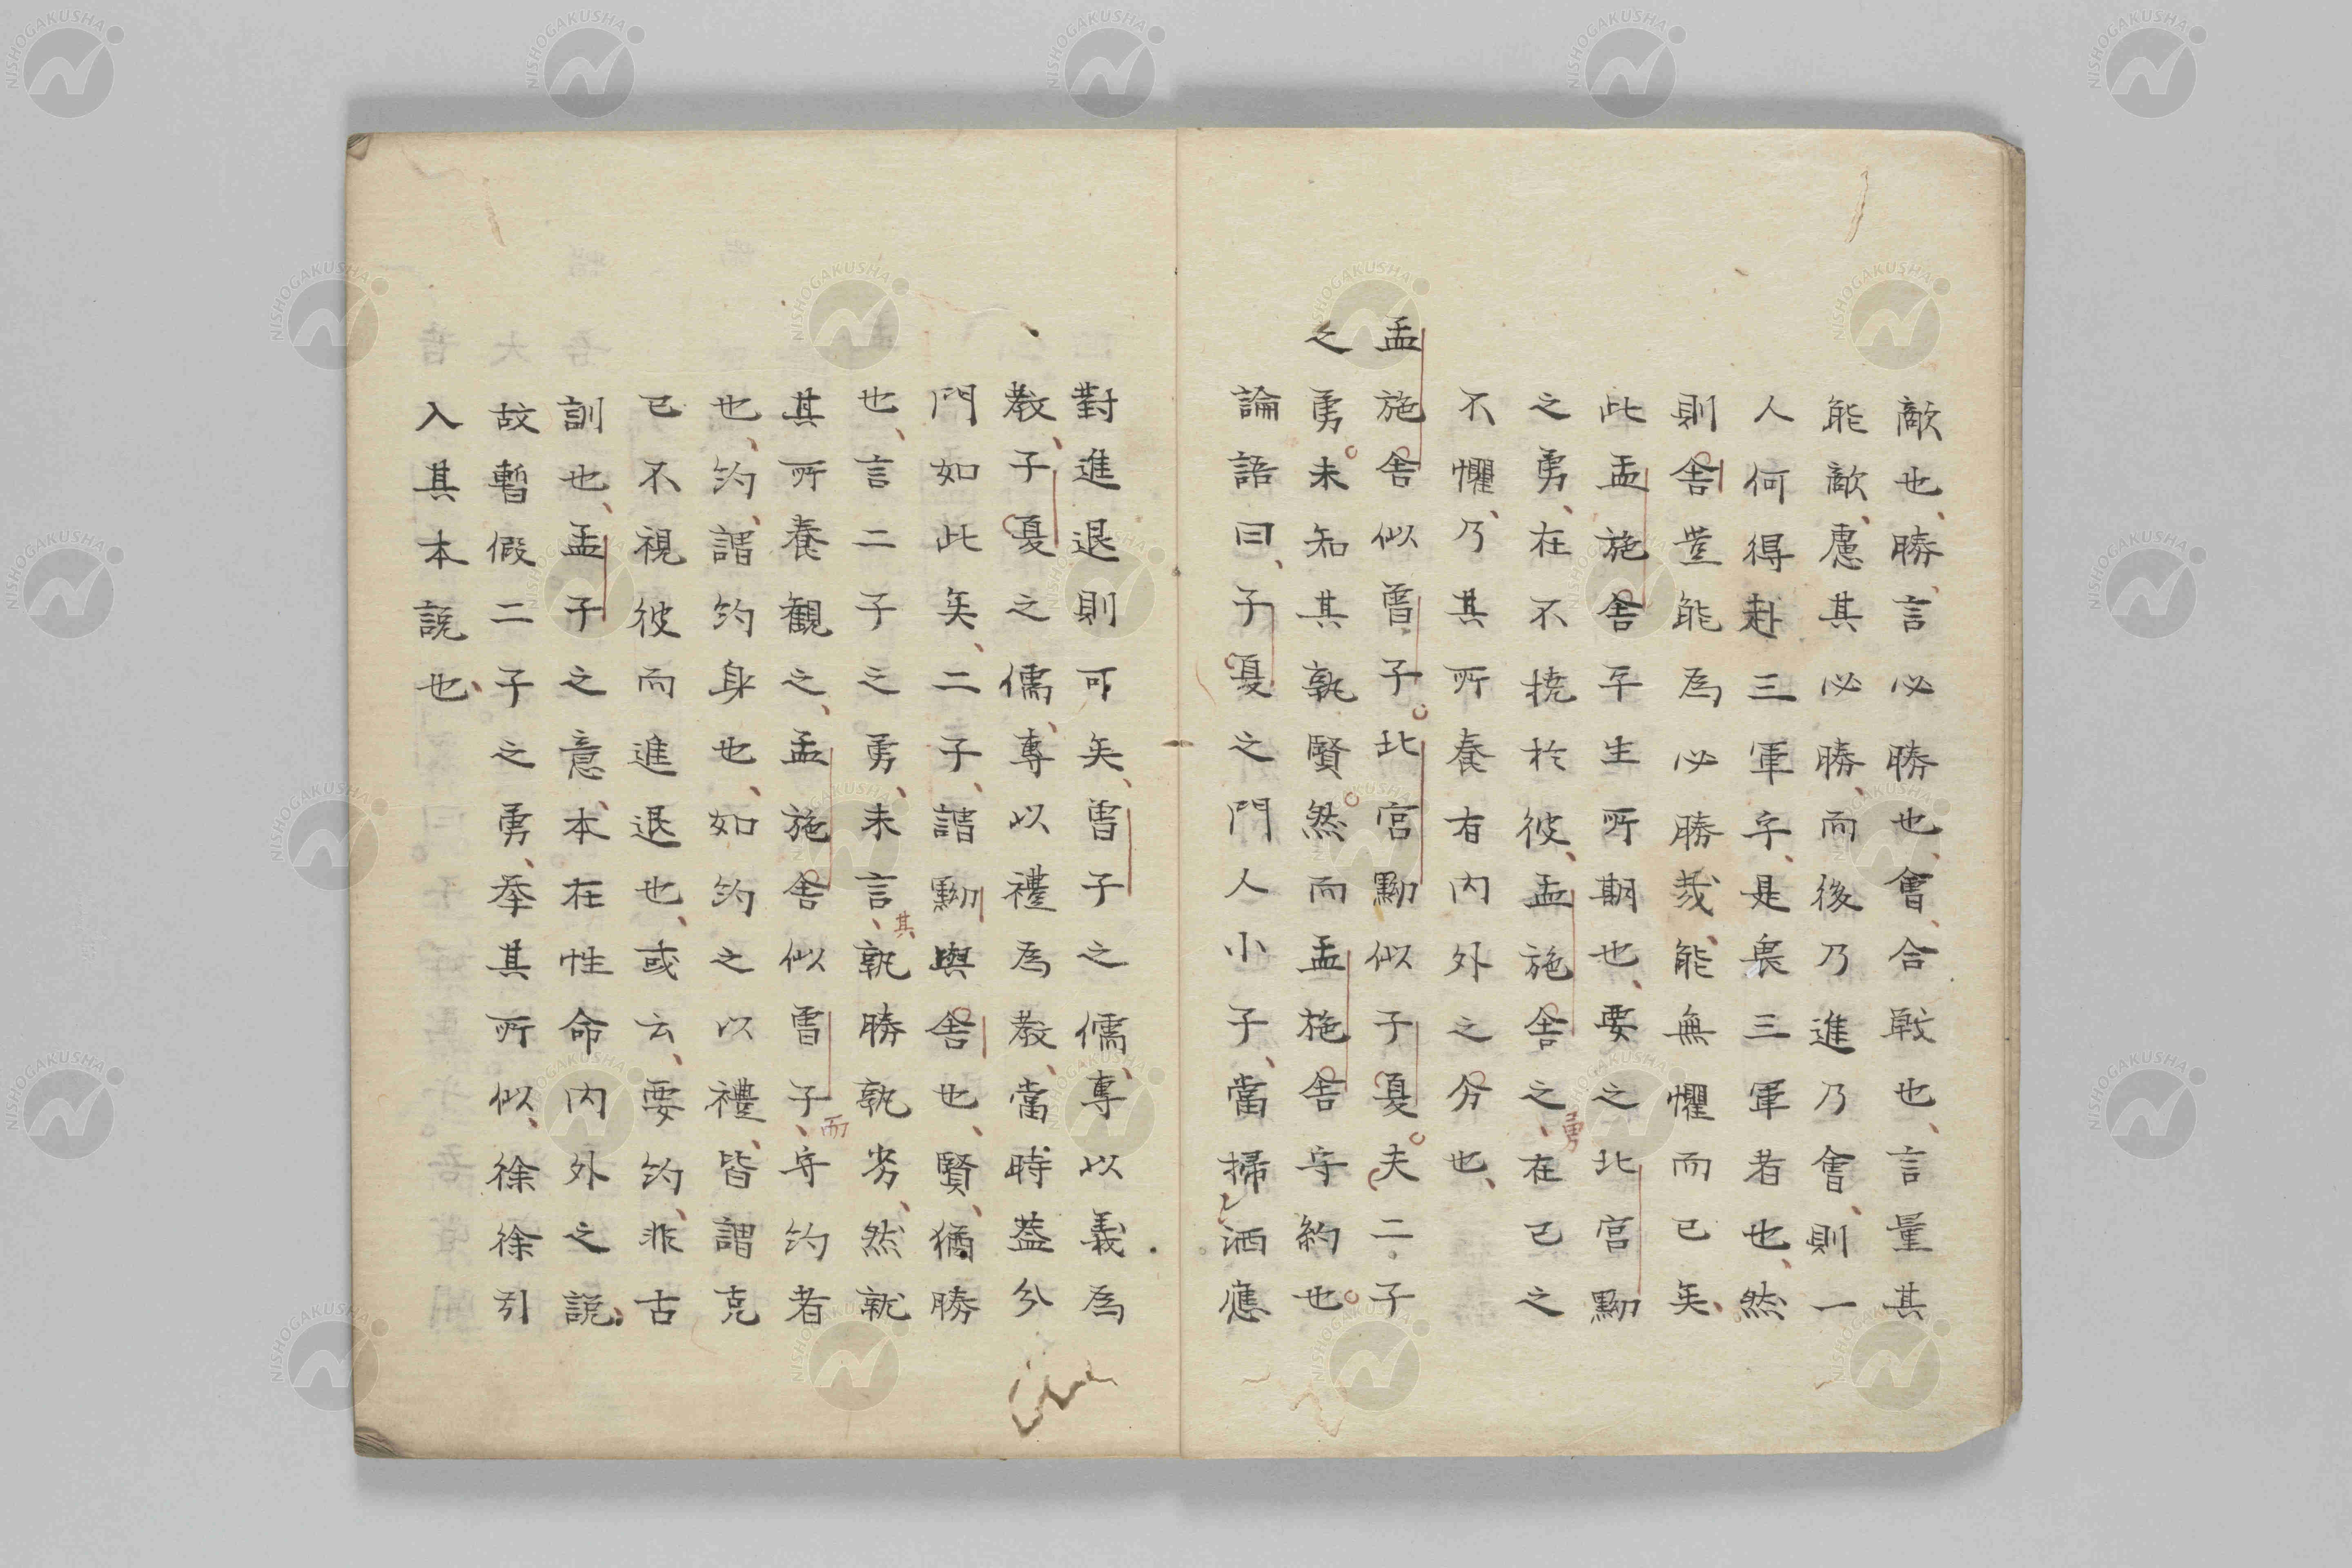 敵也、勝、言必勝也、會、合戰也、言量其
能敵、慮其必勝、而後乃進乃會、則一
人何得赴三軍乎、是畏三軍者也、然
則舍豈能爲必勝哉、能無懼而已矣、
此孟施舍平生所期也、要之北宮黝
之勇、在不撓於彼、孟施舍之勇、在己之
不懼、乃其所養有内外之分也、
孟施舍似曾子。北宮黝似子夏。夫二子
之勇。未知其孰賢。然而孟施舍守約也。
論語曰、子夏之門人小子、當掃洒應
對進退則可矣、曽子之儒、專以義爲
教、子夏之儒、專以禮爲教、當時蓋分
門如此矣、二子、謂黝與舍也、賢、猶勝
也、言二子之勇、未言、其孰勝孰劣、然就
其所養觀之、孟施舍似曽子、而守約者
也、約、謂約身也、如約之以禮、皆謂克
己不視彼而進退也、或云、要約、非古
訓也、孟子之意、本在性命内外之說、
故暫假二子之勇、举其所似、徐徐引
入其本說也、
NISHOGAKUSHA